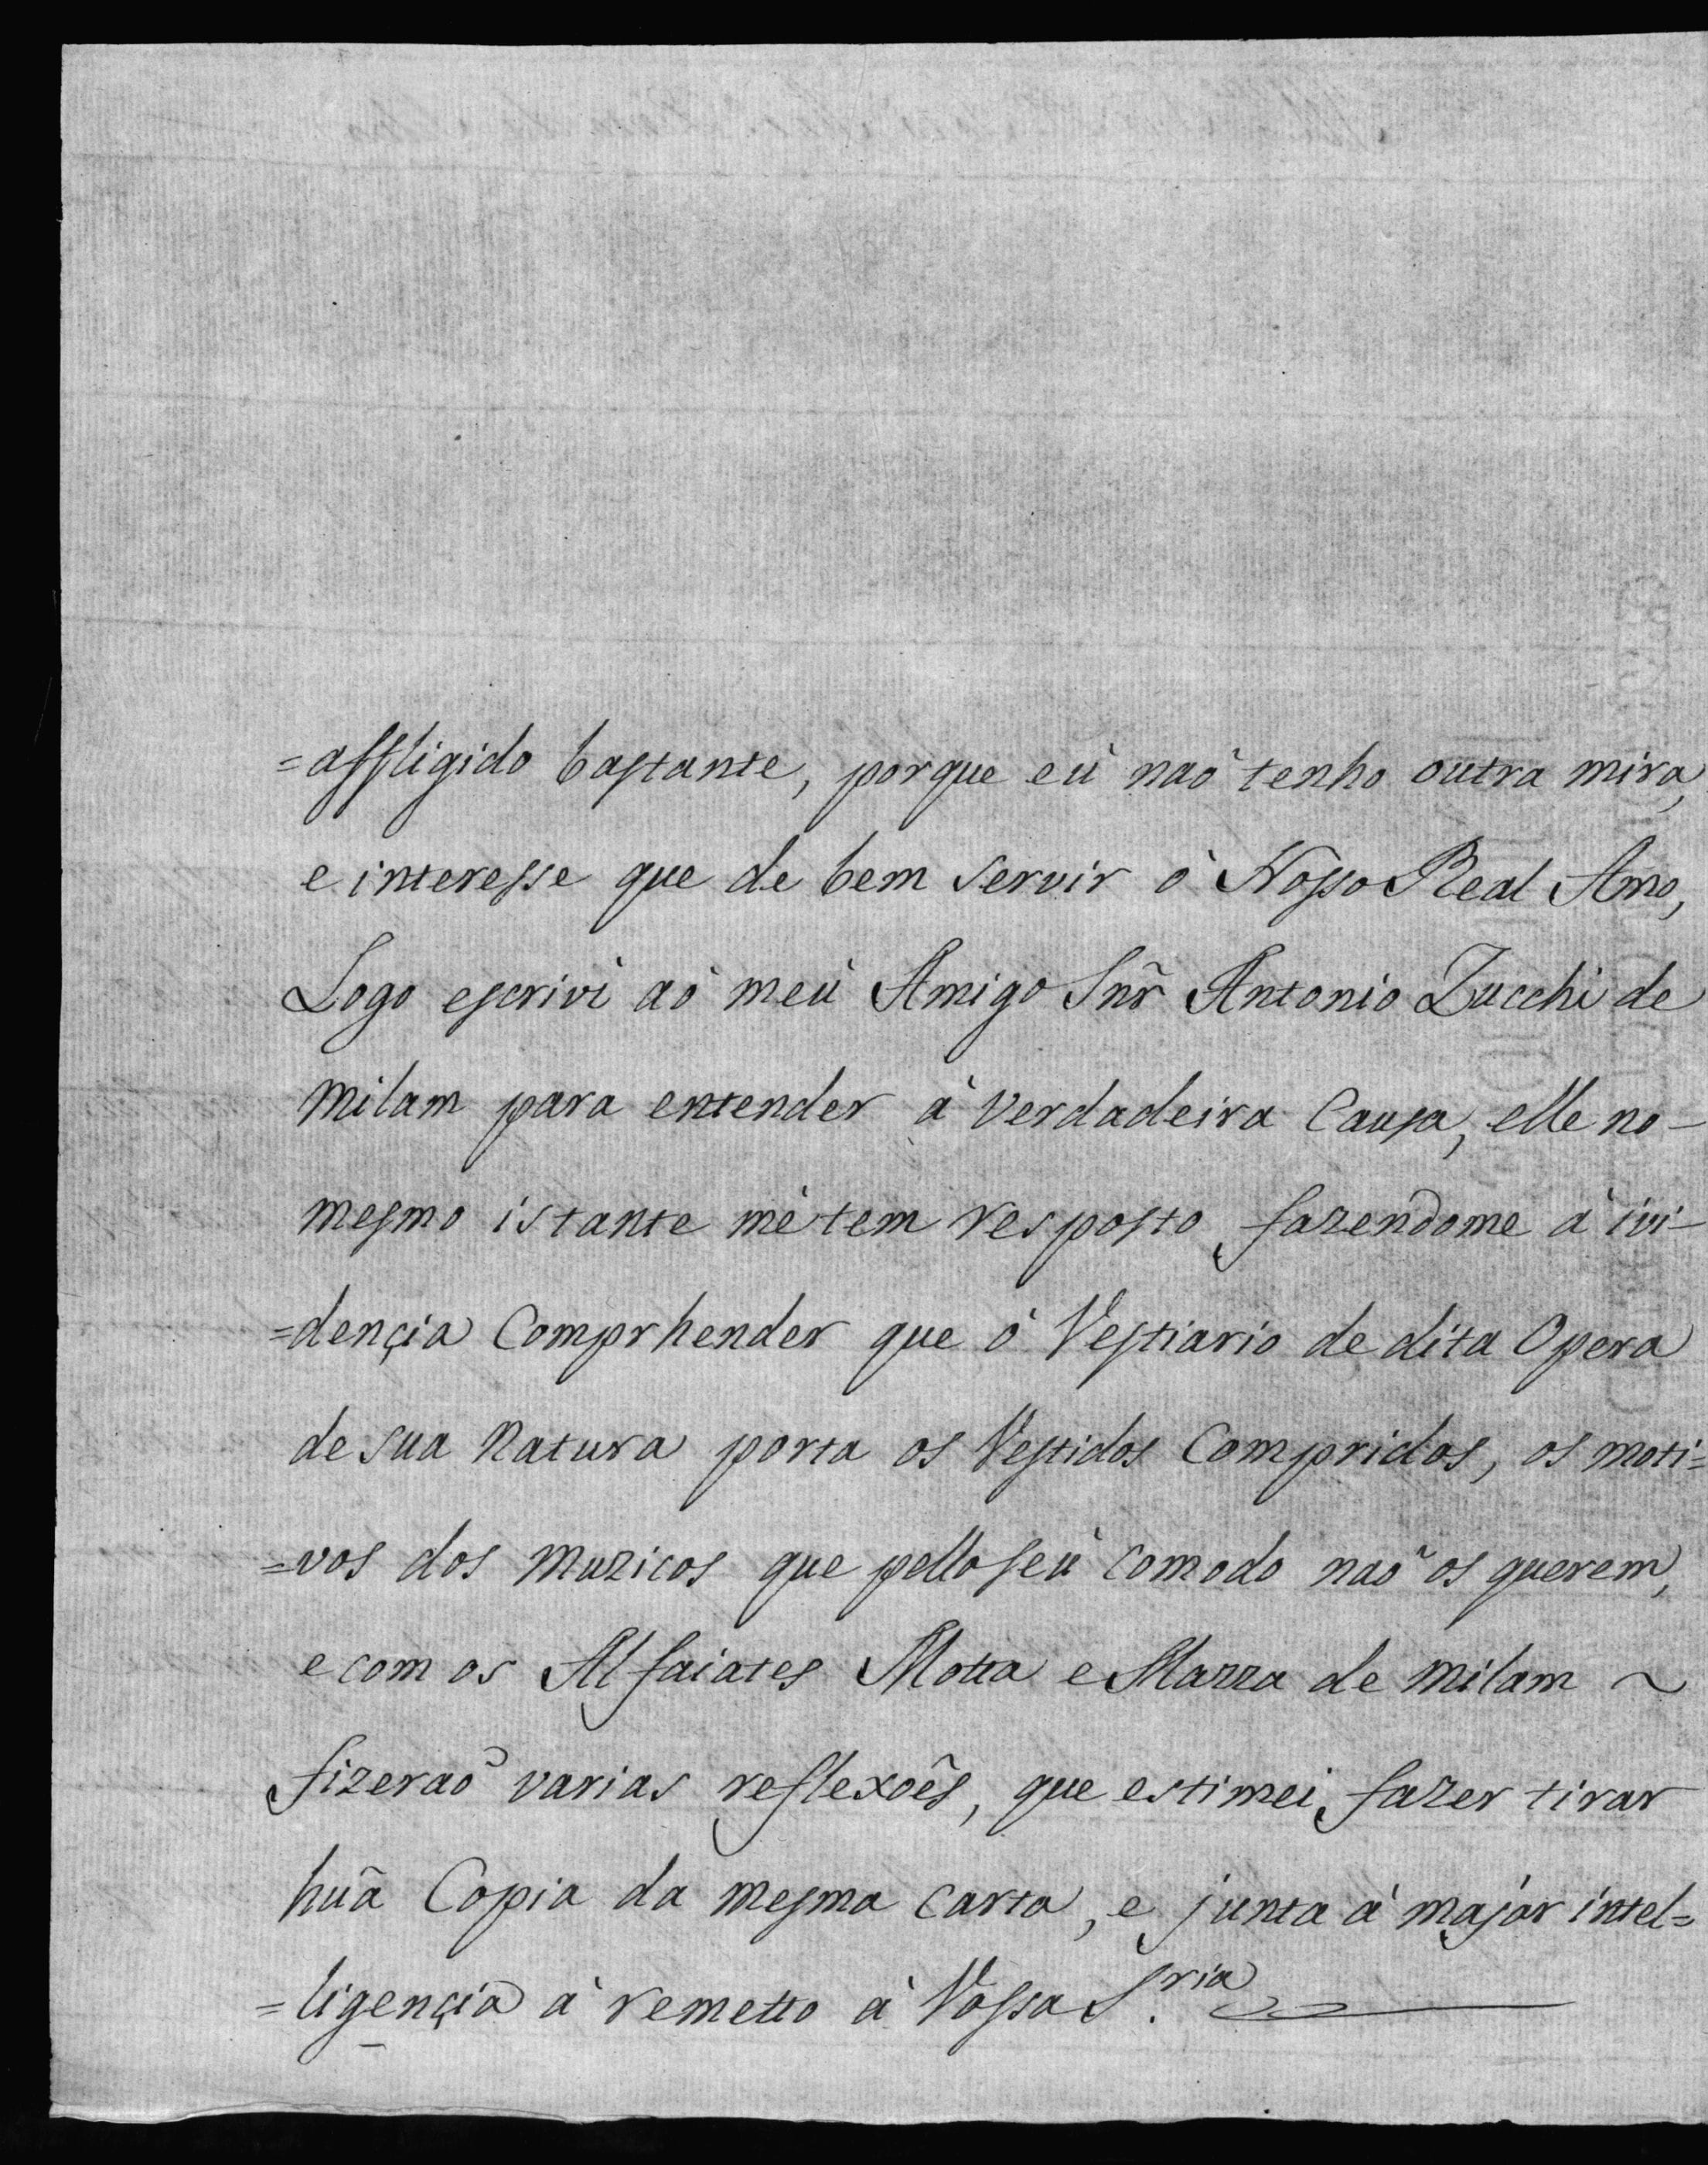 =affligido bastante, porque eù naõ tenho outra mira,
e interesse que de bem servir ò Nosso Real Amo,
Logo escrivì aò meù Amigo Snr̃ Antonio Zucchi de
Milam para entender à verdadeira Causa, elle no-
mesmo istante mè tem resposto fazendome à ivi-
=dençia Comprhender que ò Vestiario de dita Opera
de sua Natura porta os Vestidos Compridos, os moti=
=vos dos Muzicos que pello seù comodo naõ os querem,
e com os Alfaiates Motta e Mazza de Milam ~
fizeraõ varias reflexoẽs, que estimei fazer tirar
huã Copia da mesma carta, e junta à major intel=
=ligençia à remetto à Vossa S.ria